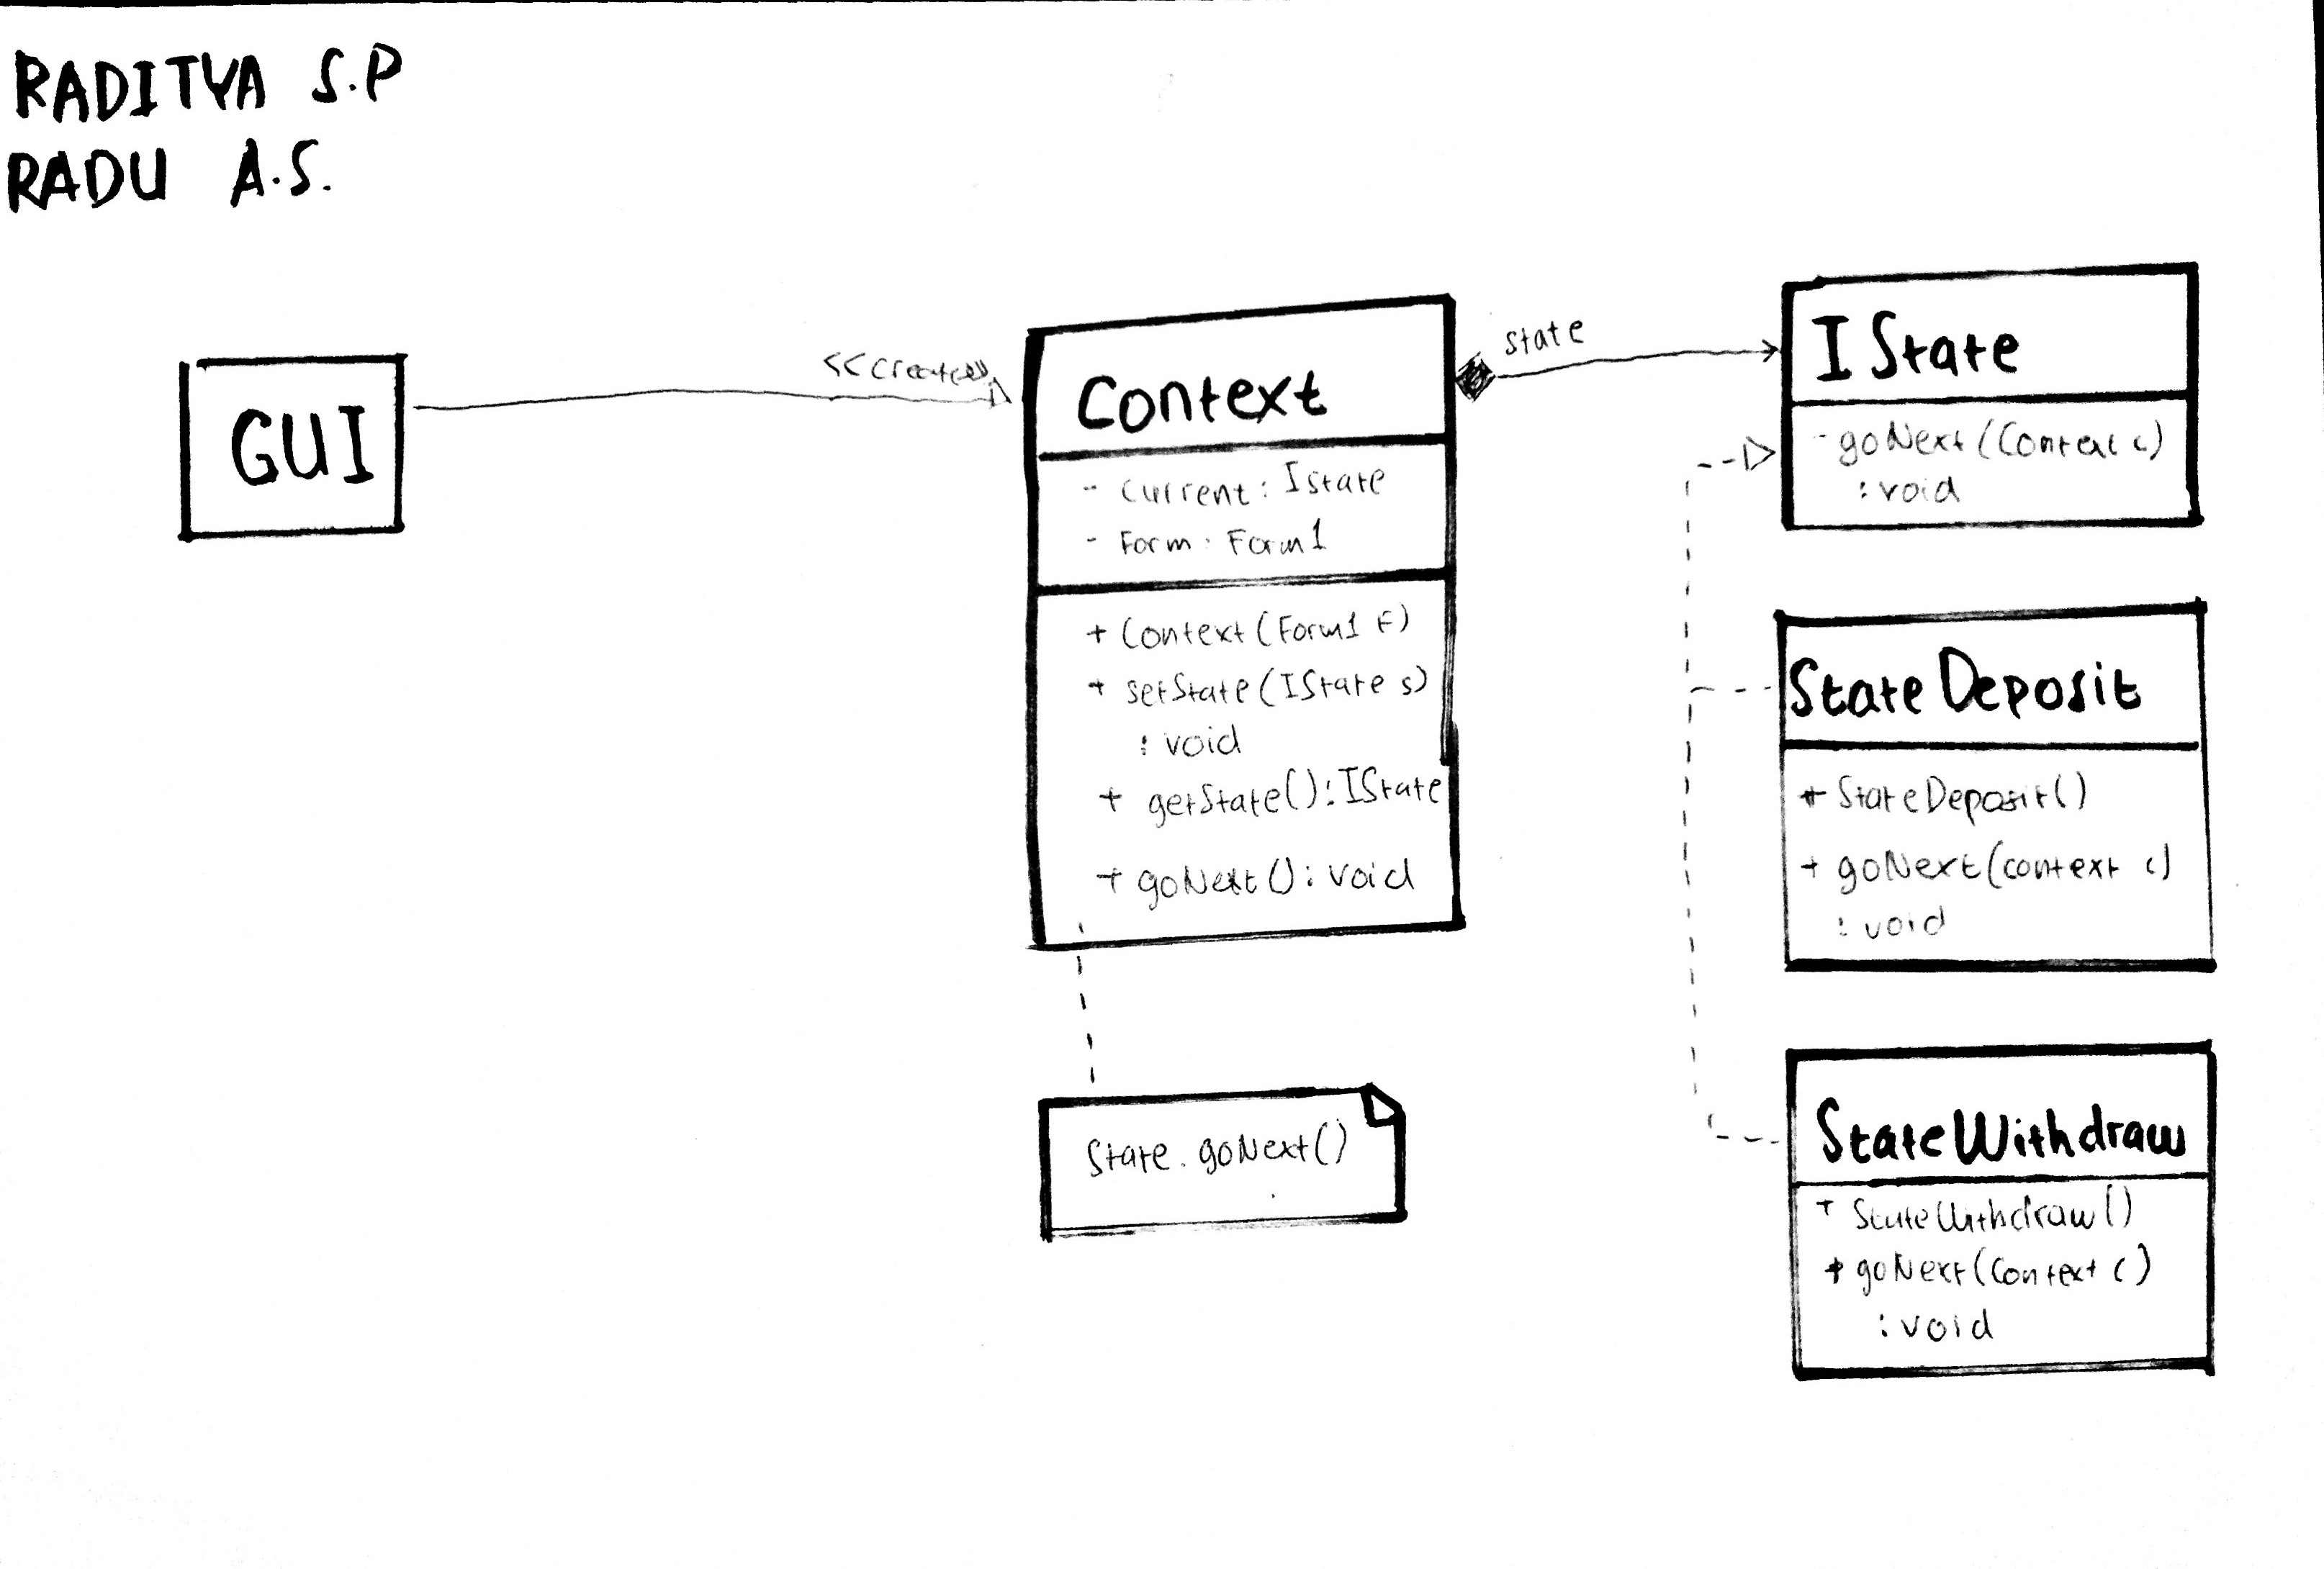 RADITYA S.P
RADU A.S.
GUI
<<creates>>
Context
- Current: IState
- Form: Form1
+ Context(Form1 F)
+ setState(IState s)
: void
+ getState():IState
+ goNext(): void
State.goNext()
state
IState
- goNext(Context c)
: void
StateDeposit
+ StateDeposit()
+ goNext(context c)
: void
StateWithdraw
+ StateWithdraw()
+ goNext(Context c)
: void